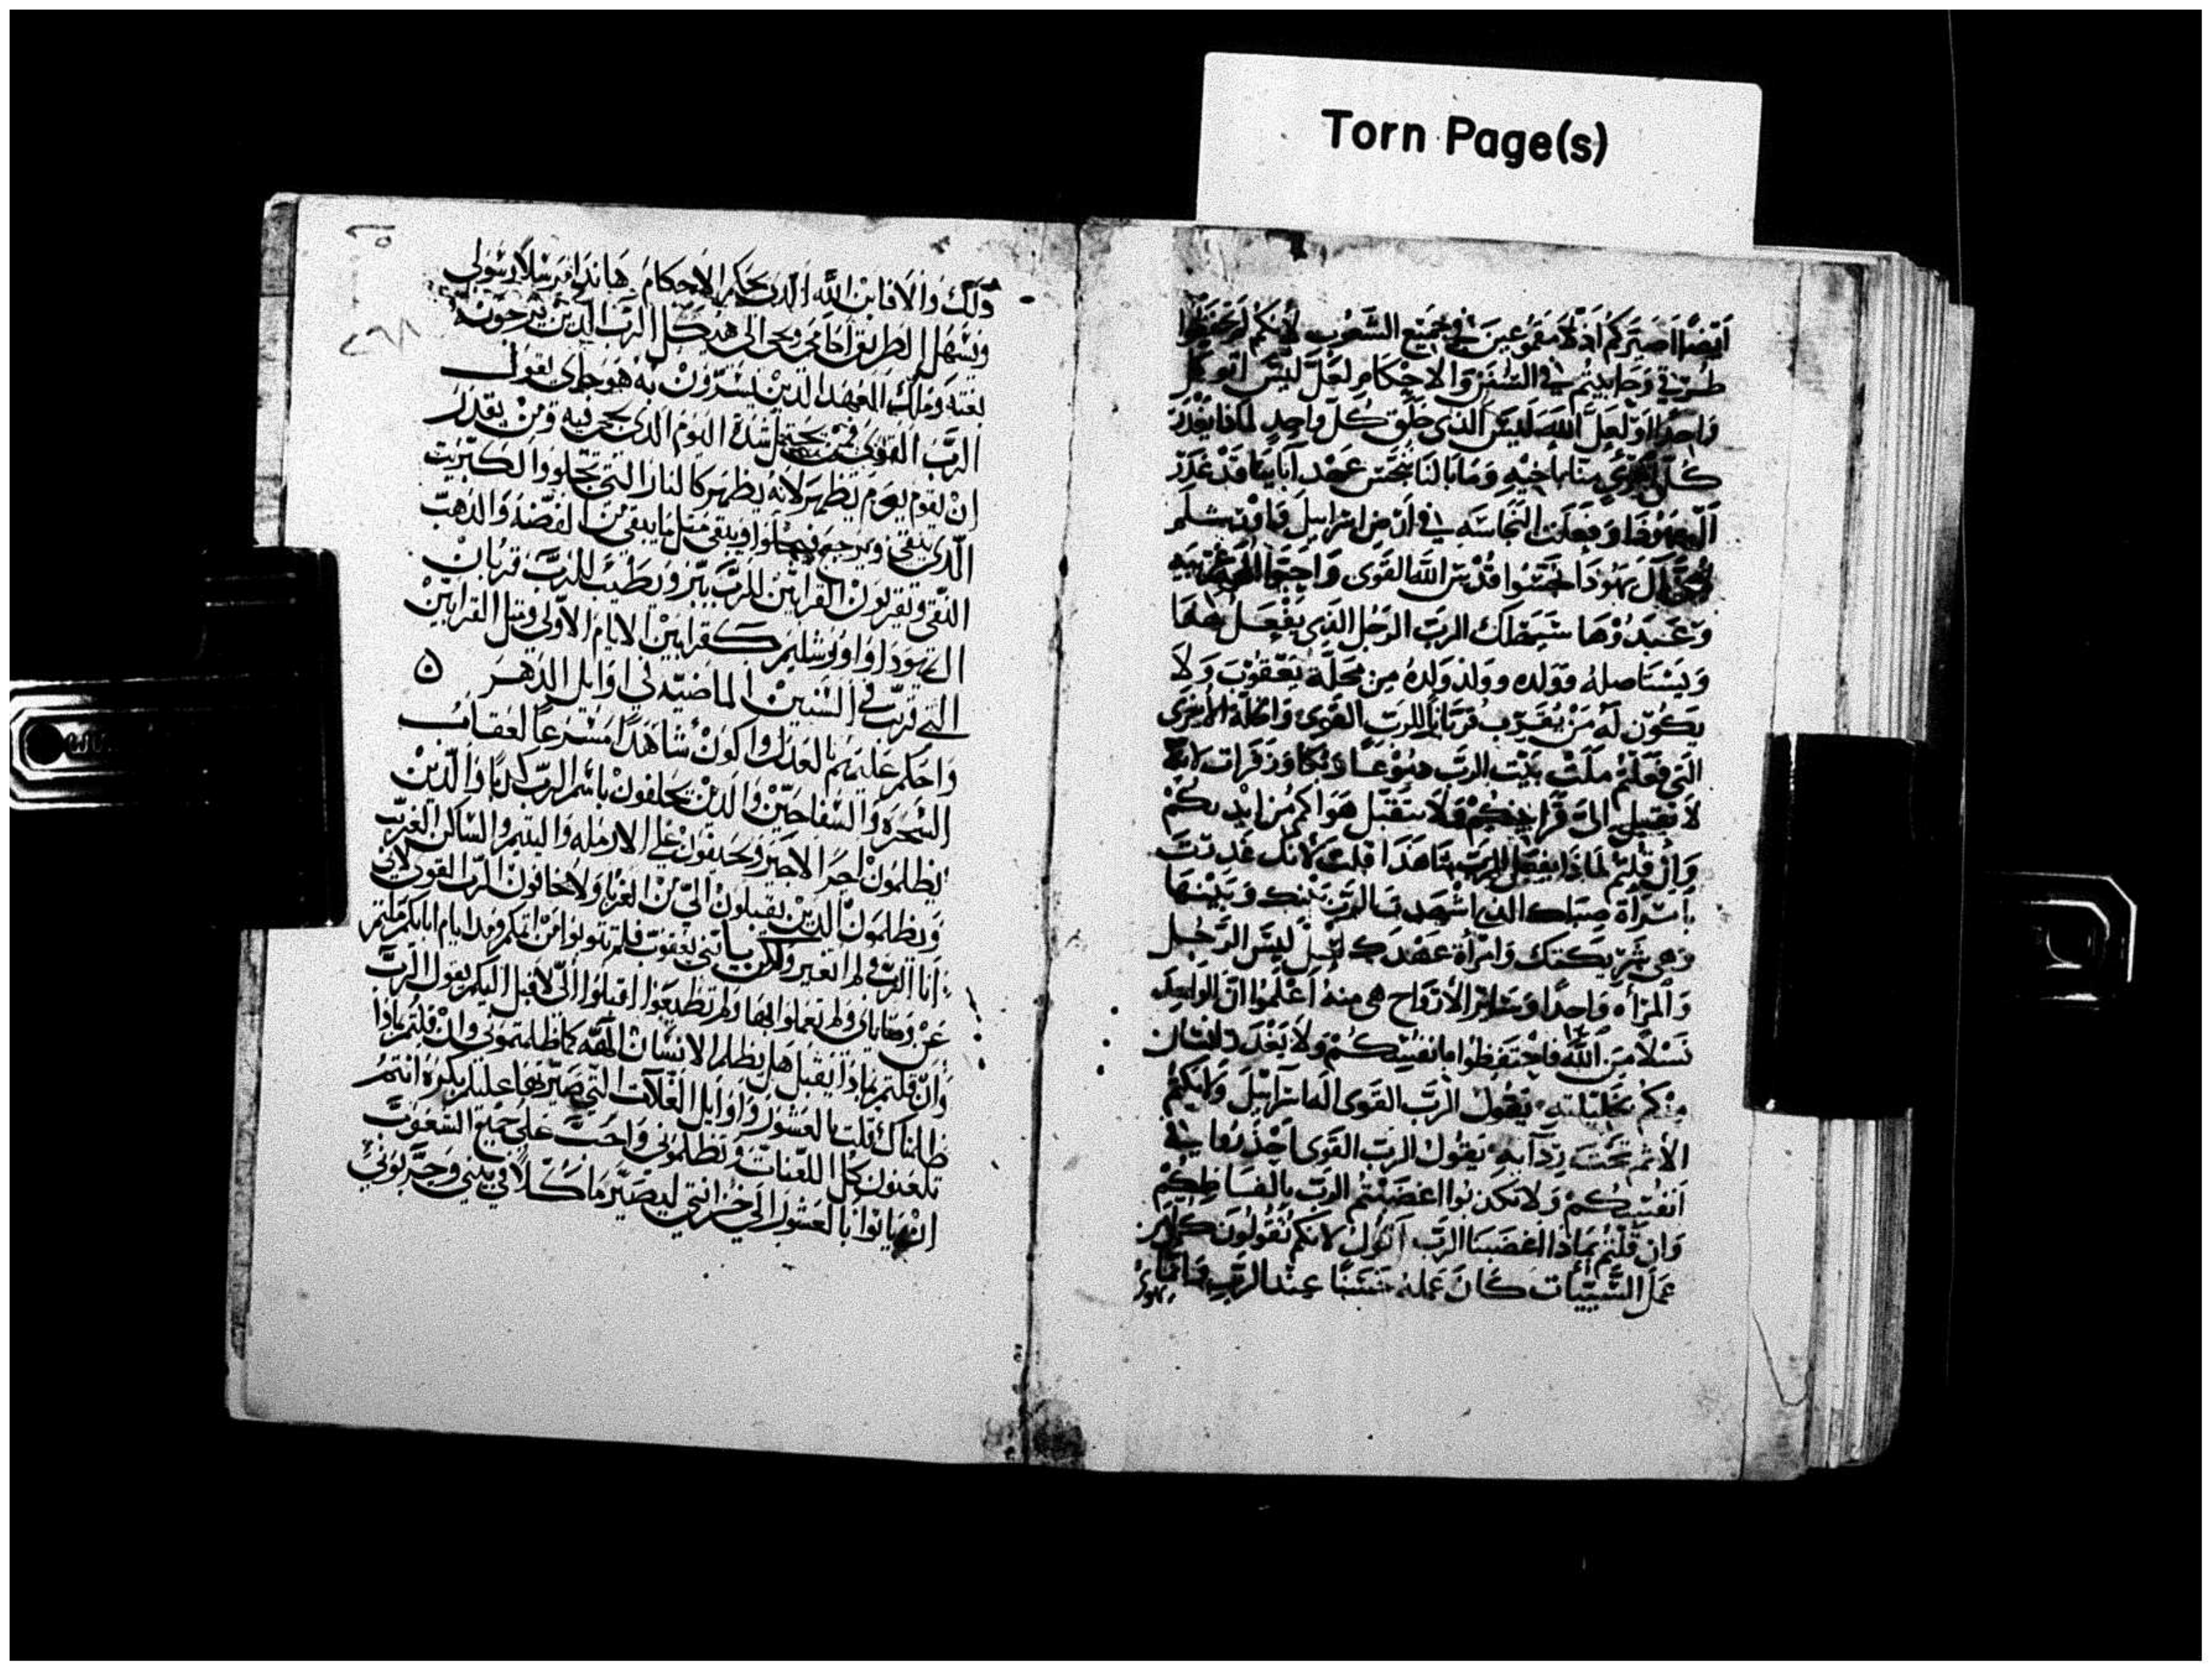 Torn Page(s)
ايضًا اصيركم اذلا مقموعين في جميع الشعوب لانكم لم تحفظوا
طرقي وحابيتم في السفن والاحكام لعل ليس اتوكل
واحدا او لعل الله ليس الذي خلق كل واحد لماذا يغدر
كل امري منا باخيه وما بالنا ننجس عهد آبائنا قد غدر
آل يهوذا وفعلت النجاسه في ارض اسرايل وفي اورشليم
لان آل يهوذا نجسوا قدس الله القوى واحبوا
وعبدوها سيهلك الرب الرجل الذي يفعل هذا
ويستاصله وولده وولد ولده من محلة يعقوب ولا
يكون له من يقرب قربانا للرب القوى وهذه الاخرى
التي فعلتم ملت بيت الرب دموعا وبكا وزفرات لانه
لا تقبل الى قرابينكم ولا ستقبل هواكم من ايديكم
وان قلتم لماذا يفعل الرب بنا هذا قلت لانك غدرت
بامراة صباك الذي اشهدت الرب بينك وبينها
وهي شريكتك وامراة عهدك لعل ليس الرجل
والمراه واحدا وسائر الارواح هي منه اعلموا ان الواحد
نسلا من الله فاحتفظوا بانفسكم ولا يغدر انسان
منكم بحليلته يقول الرب القوى اله اسرائيل ولا يكم
الاثم تحت رداءه يقول الرب القوى احذروا في
انفسكم ولا تكذبوا اغضبتم الرب بالفاظكم
وان قلتم بماذا اغضبنا الرب اقول لانكم تقولون كل من
عمل السيئات كان عمله حسنا عند الرب
ذلك والا فاين الله الذي يحكم الاحكام هانذا مرسلا رسولي
ويسهل الطريق امامي ويجي الى هيكل الرب الذين ترجون
بغته وملك العهد الذين تسرون به هو جاي يقول
الرب القوى فمن يحتمل شدة اليوم الذي يجي فيه ومن يقدر
ان يقوم يوم يظهر لانه يظهر كالنار التي تجلو والكبريت
الذي ينقي ويرجع وينقي مثل ما ينقي من الفضة والذهب
النقي ويقربون القرابين للرب ببر ويطيب للرب قربان
اليهودا واورشليم كقرابين الايام الاولى ومثل القرابين
التي قربت في السنين الماضيه في اوايل الدهر ٥
واحكم عليهم بالعدل واكون شاهدا مسرعا لعقاب
السحره والسفاحين والذين يحلفون باسم الرب كذبا والذين
يظلمون اجر الاجير ويحيفون على الارمله واليتيم والساكن الغريب
ويظلمون الذين يقبلون الي من الغربا ولا يخافون الرب القوى لاني
انا الرب لم اتغير ولكن يا بني يعقوب فلم تتوبوا من اثمكم ومنذ ايام ابائكم ملتم
عن وصاياي ولم تعملوا بها ولم تطيعوا اقبلوا الي لاقبل اليكم يقول الرب
وان قلتم بماذا نقبل هل يظلم الانسان الهه كما ظلمتموني وان قلتم بماذا
ظلمناك قلت بالعشور واوايل الغلات التي صيرتها عليكم بكره انتم
تلعنون كل اللعنات وتظلموني واجب على جميع الشعوب
ان ياتوا بالعشور الى خزانتي ليصير ماكلا في بيتي وجربوني